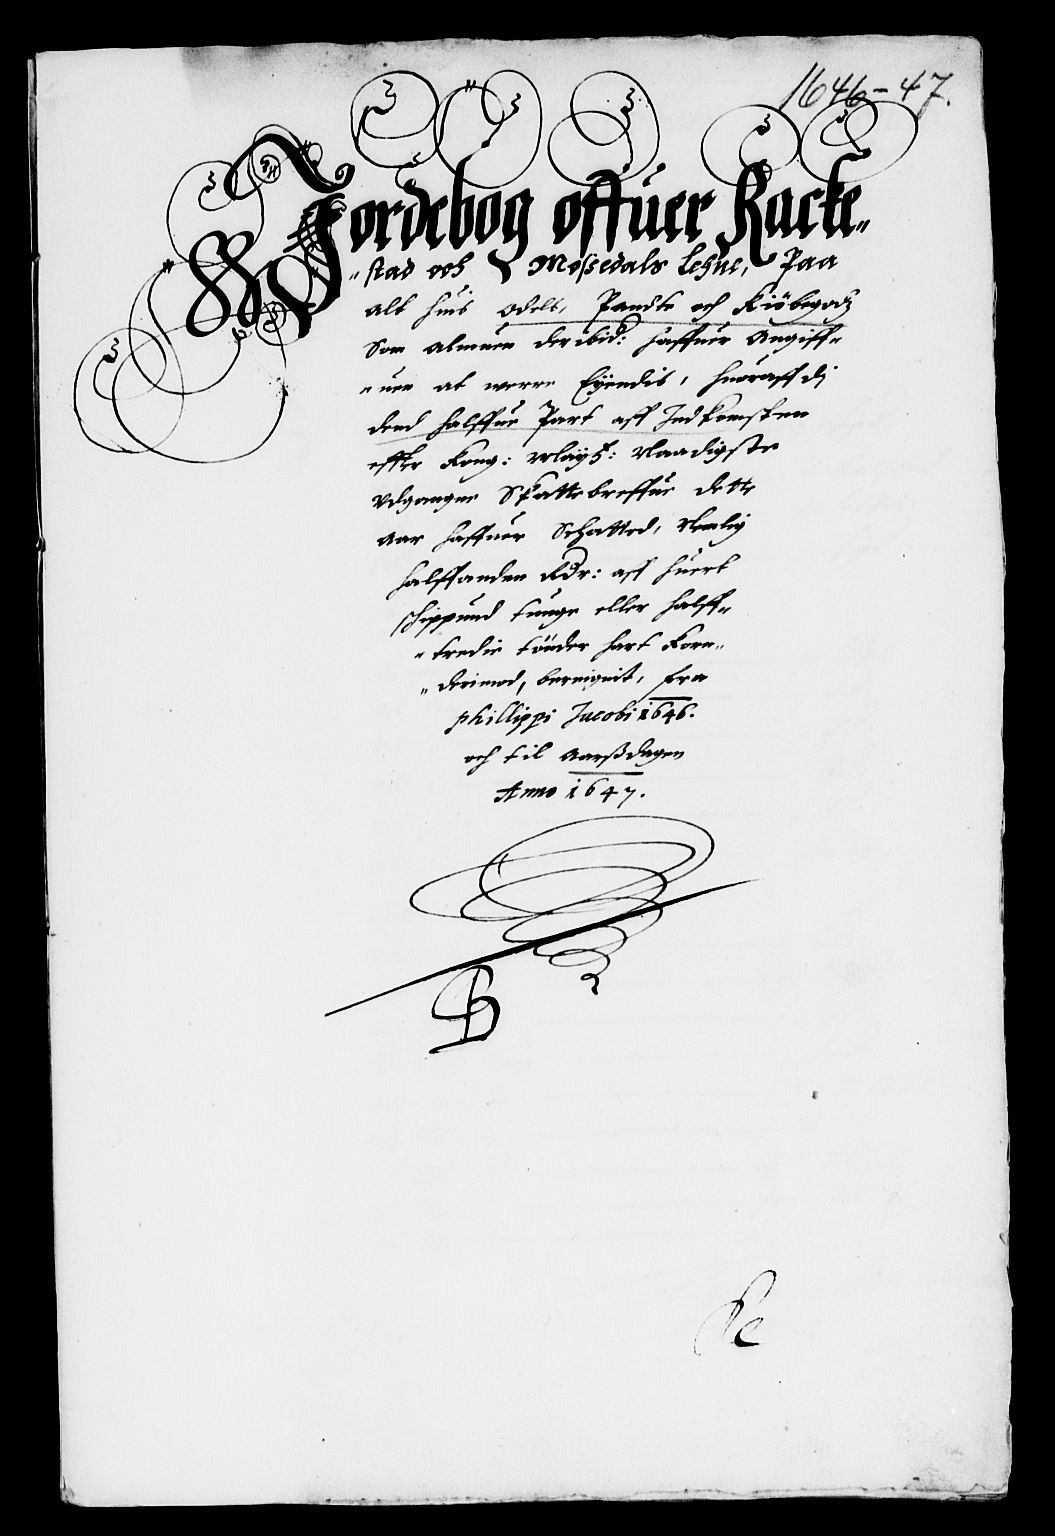 1646-47.
Jordebog offuer Racke„
„stad och Mossedals Lehne, Paa
alt huis odels, Pandte och Kiöbegodz
Som almuen deribid: haffuer Angiff„
„uen at werre Eyendis, huoraff di
dend halffue Part aff Indkomsten
effter Kong: Mayt: Naadigste
Udgangne Skattebreffue dette
Aar haffuer Schatted, Nemlig
halffanden Rdr: aff huert
schippund tunge eller halff„
„tredie tönder hart Korn„
„derimod, beregnit, fra
phillippi Jacobi 1646.
och til Aarßdagen
Anno 1647.